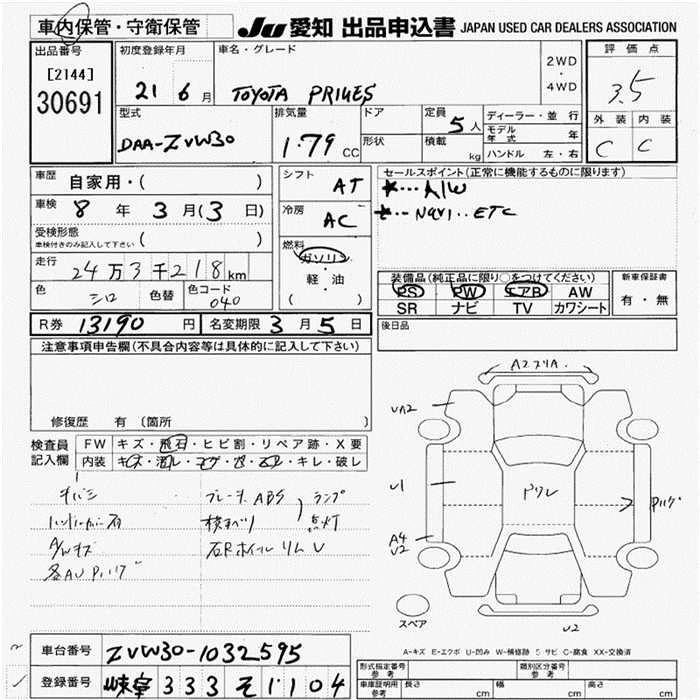 車内保管・守衛保管
JU 愛知 出品申込書 JAPAN USED CAR DEALERS ASSOCIATION
出品番号
[2144]
30691
初度登録年月
21 6 月
車名・グレード
TOYOTA PRIUES
2WD
・
4WD
評価点
3.5
外装 内装
C C
型式
DAA-ZVW30
排気量
1.79 CC
ドア
形状
定員
5人
積載
kg
ディーラー・並行
モデル年式 年
ハンドル 左・右
車歴
自家用・( )
車検 8 年 3 月(3 日)
受検形態
車検付きのみ記入して下さい ( )
走行
24万3千218km
色
シロ
色替
色コード
040
シフト
AT
冷房
AC
燃料
ガソリン
・
軽油
( )
セールスポイント(正常に機能するものに限ります)
★…A/W
★…Navi..ETC
装備品(純正品に限り○をつけてください)
PS PW エアB AW
SR ナビ TV カワシート
新車保証書
有・無
後日品
R券 13190 円 名変期限 3月5日
注意事項申告欄(不具合内容等は具体的に記入して下さい)
修復歴 有 (箇所 )
検査員
記入欄
FW キズ・飛石・ヒビ割・リペア跡・X要
内装 キズ・汚レ・コゲ・・キレ・破レ
ブレーキ ABS
ランプ
点灯
A/Wキズ
石Rホイール リム U
各AU Pハゲ
A2
UA2
U1
A4
U2
Pハゲ
U2
スペア
A-キズ E-エクボ U-凹み W-補修跡 S-サビ C-腐食 XX-交換済
車台番号 ZVW30-1032595
登録番号 333 そ 1104
形式指定番号
参考
類別区分番号
参考
車庫証明用
参考
長さ cm 幅 cm 高さ cm